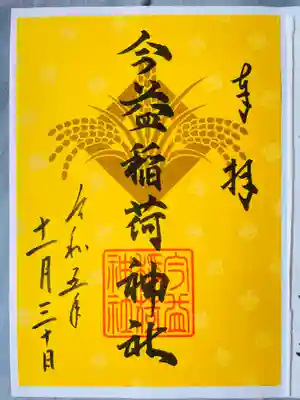 奉拝
今益稲荷神社
今益稲荷神社
令和五年
十一月三十日